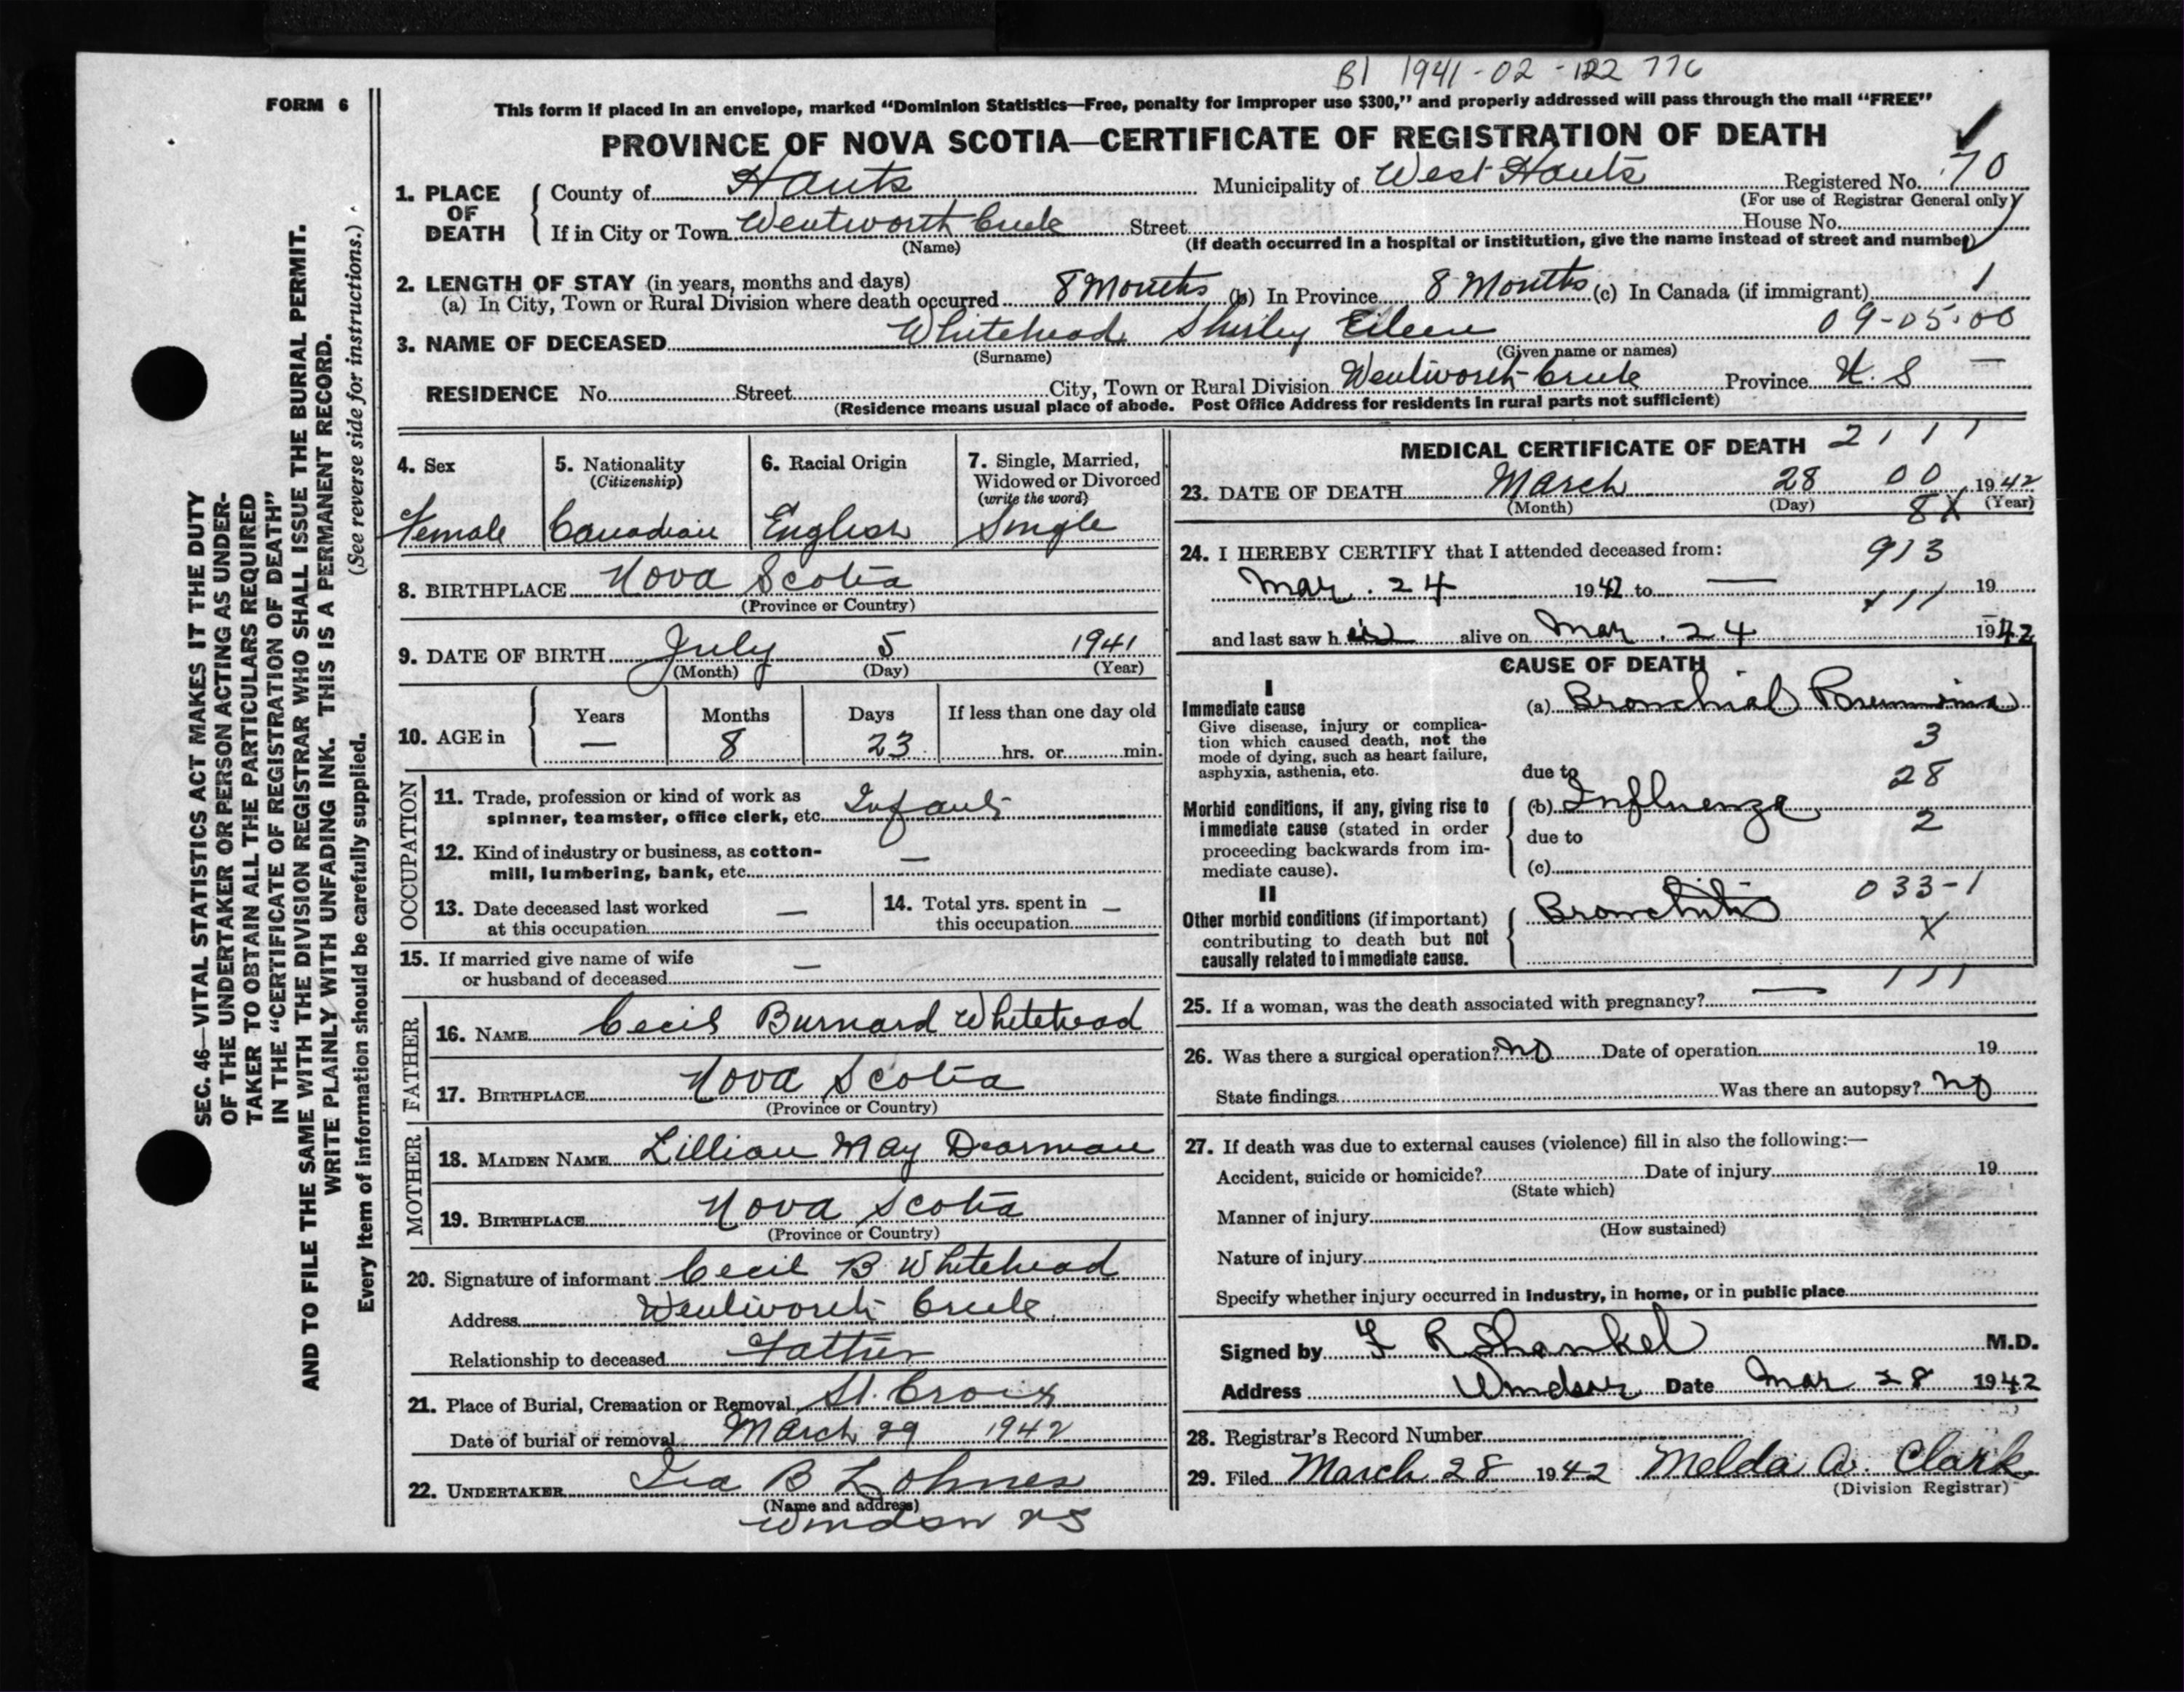 B1 1941-02-122 776
FORM 6
This form if placed in an envelope, marked "Dominion Statistics—Free, penalty for improper use $300," and properly addressed will pass through the mail "FREE"
PROVINCE OF NOVA SCOTIA—CERTIFICATE OF REGISTRATION OF DEATH
1. PLACE OF DEATH County of Hants Municipality of West Hants Registered No. 70
(For use of Registrar General only)
If in City or Town Wentworth Creek Street House No.
(Name) (If death occurred in a hospital or institution, give the name instead of street and number)
2. LENGTH OF STAY (in years, months and days)
(a) In City, Town or Rural Division where death occurred 8 Months (b) In Province 8 Months (c) In Canada (if immigrant) 1
09-05-00
3. NAME OF DECEASED Whitehead Shirley Eileen
(Surname) (Given name or names)
RESIDENCE No. Street City, Town or Rural Division Wentworth Creek Province N. S —
(Residence means usual place of abode. Post Office Address for residents in rural parts not sufficient)
4. Sex Female
5. Nationality (Citizenship) Canadian
6. Racial Origin English
7. Single, Married, Widowed or Divorced (write the word) Single
8. BIRTHPLACE Nova Scotia
(Province or Country)
9. DATE OF BIRTH July 5 1941
(Month) (Day) (Year)
10. AGE in Years — Months 8 Days 23 If less than one day old hrs. or min.
OCCUPATION
11. Trade, profession or kind of work as
spinner, teamster, office clerk, etc. Infant
12. Kind of industry or business, as cotton-
mill, lumbering, bank, etc. —
13. Date deceased last worked
at this occupation —
14. Total yrs. spent in
this occupation —
15. If married give name of wife
or husband of deceased —
FATHER
16. NAME Cecil Burnard Whitehead
17. BIRTHPLACE Nova Scotia
(Province or Country)
MOTHER
18. MAIDEN NAME Lillian May Dearman
19. BIRTHPLACE Nova Scotia
(Province or Country)
20. Signature of informant Cecil B Whitehead
Address Wentworth Creek
Relationship to deceased Father
21. Place of Burial, Cremation or Removal St. Croix
Date of burial or removal March 29 1942
22. UNDERTAKER Ira B Lohnes
(Name and address)
Windsor NS
MEDICAL CERTIFICATE OF DEATH 2111
23. DATE OF DEATH March 28 00 1942
(Month) (Day) 8X (Year)
24. I HEREBY CERTIFY that I attended deceased from: 913
Mar. 24 1942 to — 19
111
and last saw h er alive on Mar. 24 1942
CAUSE OF DEATH
I
Immediate cause (a) Bronchial Pneumonia
Give disease, injury or complica-
tion which caused death, not the
mode of dying, such as heart failure,
asphyxia, asthenia, etc. due to
3
28
2
Morbid conditions, if any, giving rise to
immediate cause (stated in order
proceeding backwards from im-
mediate cause).
(b) Influenza
due to
(c)
II
Other morbid conditions (if important)
contributing to death but not
causally related to immediate cause.
Bronchitis 033-1
X
111
25. If a woman, was the death associated with pregnancy? —
26. Was there a surgical operation? No Date of operation 19
State findings Was there an autopsy? No
27. If death was due to external causes (violence) fill in also the following:—
Accident, suicide or homicide? Date of injury 19
(State which)
Manner of injury
(How sustained)
Nature of injury
Specify whether injury occurred in industry, in home, or in public place
Signed by F R Shankel M.D.
Address Windsor Date Mar 28 1942
28. Registrar's Record Number
29. Filed March 28 1942 Melda A. Clark
(Division Registrar)
SEC. 46—VITAL STATISTICS ACT MAKES IT THE DUTY
OF THE UNDERTAKER OR PERSON ACTING AS UNDER-
TAKER TO OBTAIN ALL THE PARTICULARS REQUIRED
IN THE "CERTIFICATE OF REGISTRATION OF DEATH"
AND TO FILE THE SAME WITH THE DIVISION REGISTRAR WHO SHALL ISSUE THE BURIAL PERMIT.
WRITE PLAINLY WITH UNFADING INK. THIS IS A PERMANENT RECORD.
Every item of information should be carefully supplied. (See reverse side for instructions.)